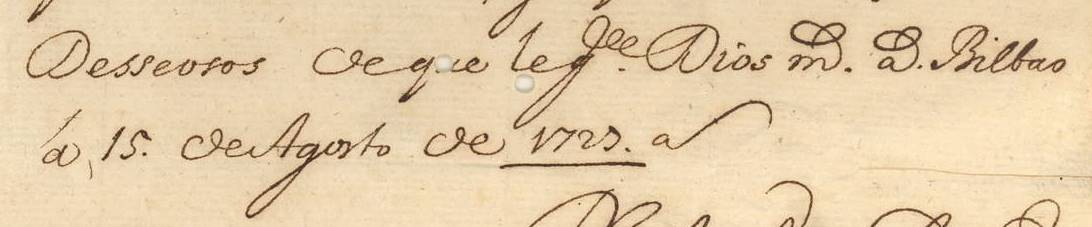 Desseosos de que le g.de Dios m. a. Bilbao
á 15. de Agosto de 1727. a